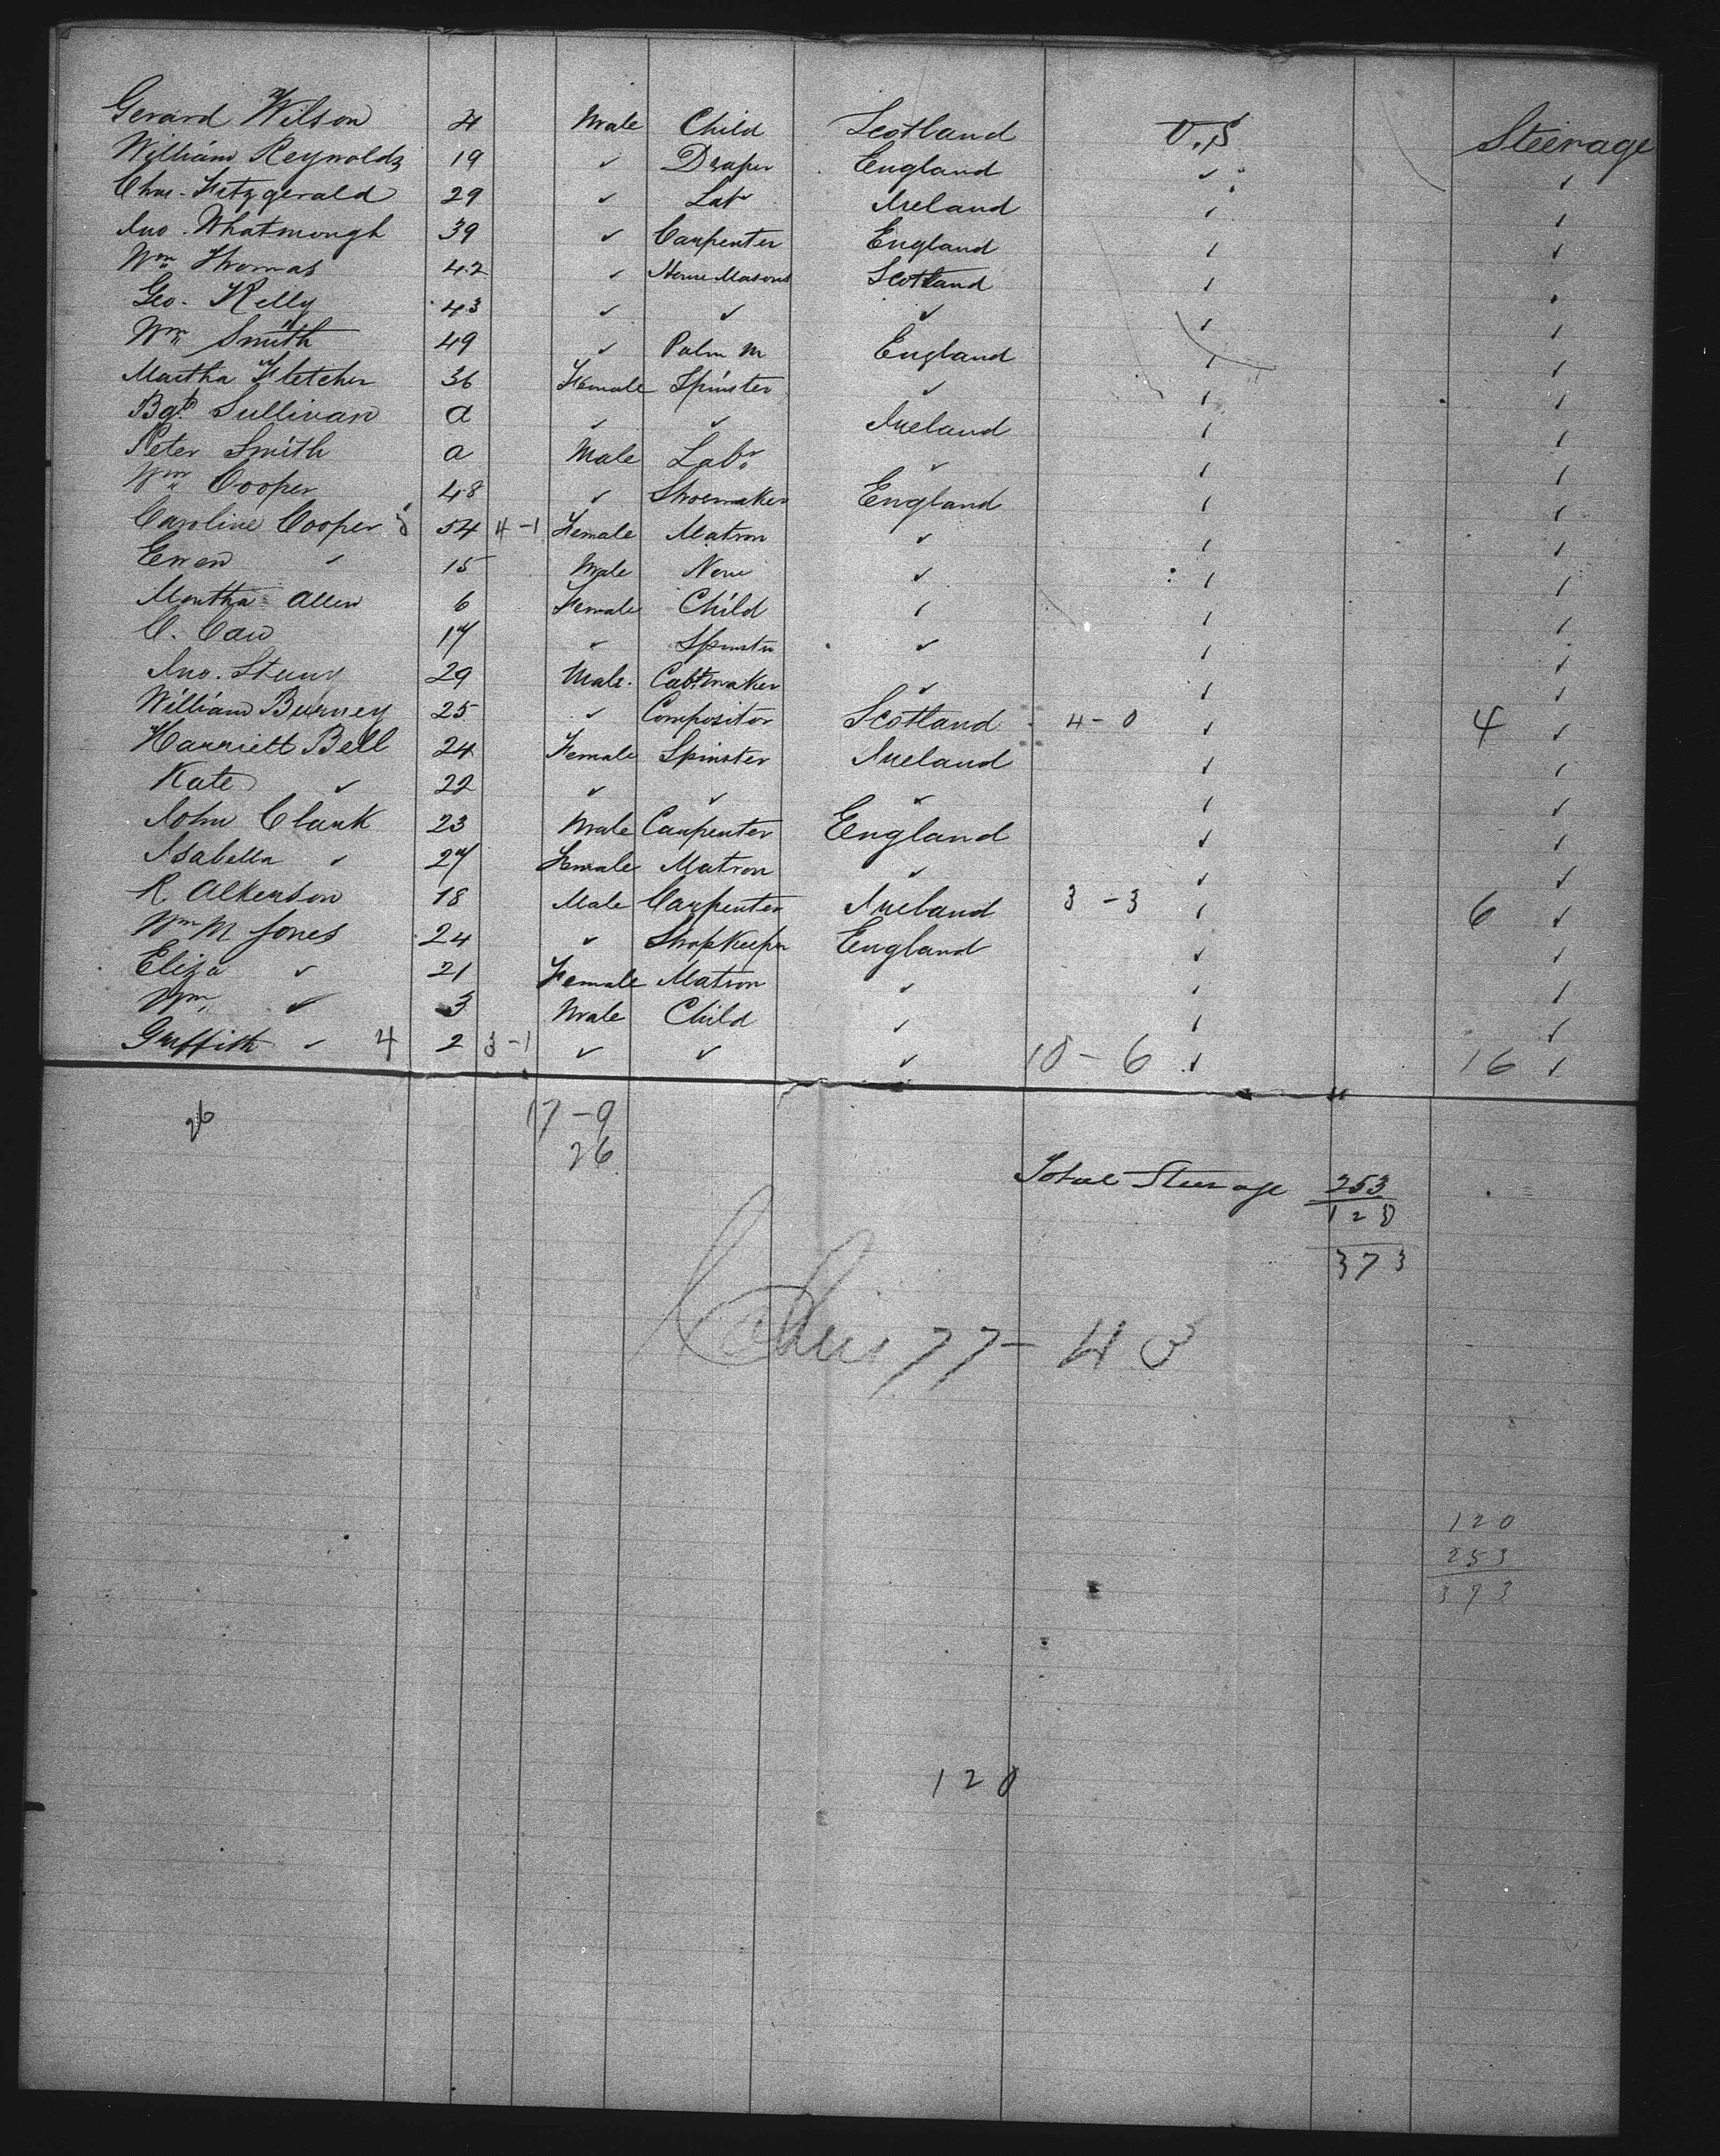 Gerard Wilson 4 Male Child Scotland U.S Steerage
William Reynolds 19 ✓ Draper England ✓ ✓
Chas. Fitzgerald 29 ✓ Labr Ireland ✓ ✓
Jno. Whatmough 39 ✓ Carpenter England ✓ ✓
Wm Thomas 42 ✓ Stone Masons Scotland ✓
Geo. Kelly 43 ✓ ✓ ✓ ✓ ✓
Wm Smith 49 ✓ England ✓ ✓
Martha Fletcher 36 Female Spinster ✓ ✓ ✓
Bgt Sullivan a ✓ ✓ Ireland ✓ ✓
Peter Smith a Male Labr ✓ ✓ ✓
Wm Cooper 48 ✓ Shoemaker England ✓ ✓
Caroline Cooper 5 54 4-1 Female Matron ✓ ✓ ✓
✓ 15 Male None ✓ ✓ ✓
Martha Allen 6 Female Child ✓ ✓ ✓
C. Caw 17 ✓ Spinster ✓ ✓ ✓
Jno. 29 Male. Cabtmaker ✓ ✓ ✓
William Burney 25 ✓ Compositor Scotland 4-0 ✓ 4 ✓
Harriett Bell 24 Female Spinster Ireland ✓ ✓
Kate ✓ 22 ✓ ✓ ✓ ✓ ✓
John Clark 23 Male Carpenter England ✓ ✓
Isabella ✓ 27 Female Matron ✓ ✓ ✓
R Alkenson 18 Male Carpenter Ireland 3-3 ✓ 6 ✓
Wm M Jones 24 ✓ ShopKeeper England ✓ ✓
Eliza ✓ 21 Female Matron ✓ ✓ ✓
Wm ✓ 3 Male Child ✓ ✓ ✓
Griffith ✓ 4 2 3-1 ✓ ✓ ✓ 10-6 ✓ 16 ✓
26 17-9
26
Total Steerage 253
120
373
77-43
120
253
373
120